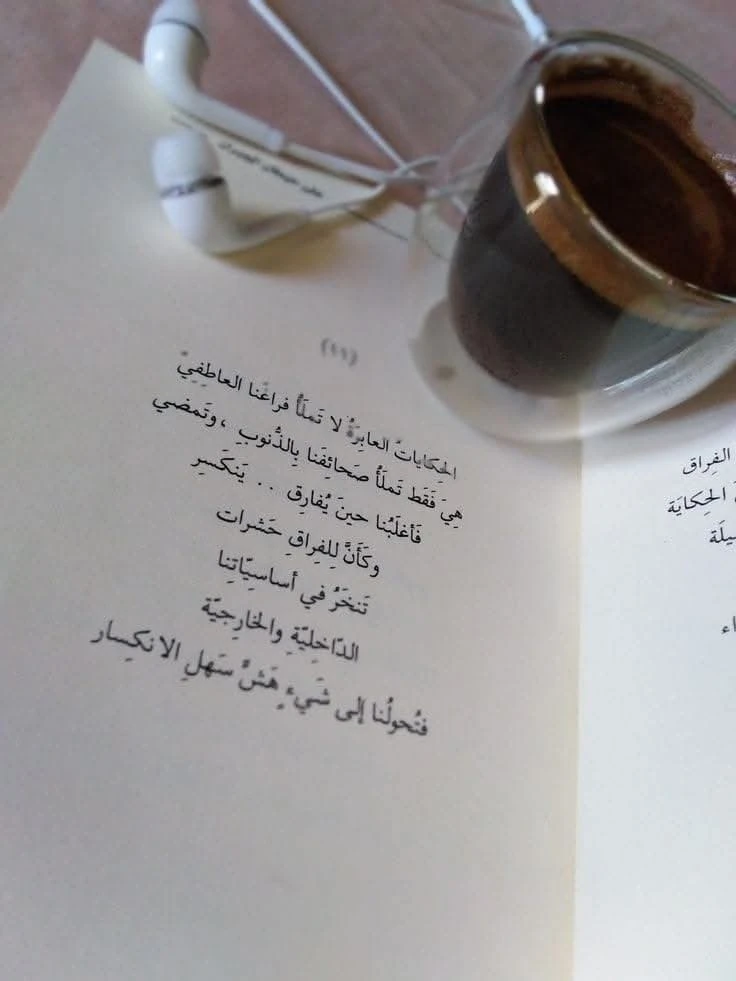 (١١)
الحِكاياتُ العابِرَةُ لا تَملَأُ فراغَنا العاطِفِيّ
هِيَ فَقَط تَملَأُ صَحائِفَنا بِالذُّنوبِ ، وتَمضي
فَأغلَبُنا حينَ يُفارِق . . يَنكَسِر
وكَأَنَّ لِلفِراقِ حَشرات
تَنخَرُ في أساسِيّاتِنا
الدّاخِلِيّةِ والخارِجِيّة
فتُحولُنا إلى شَيءٍ هَشٍّ سَهلِ الانكِسار
الفِراق
الحِكايَة